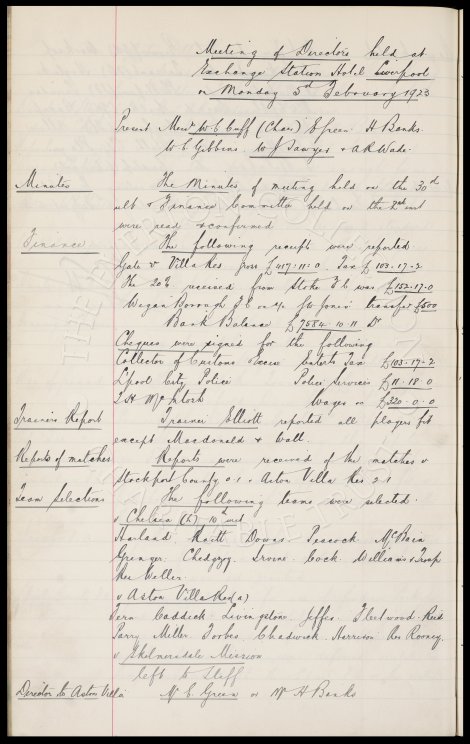 Meeting of Directors held at
Exchange Station Hotel Liverpool
on Monday 5th February 1923
Present Messrs W.C. Cuff (Chair) E Green H Banks
W.C Gibbins W J Sawyer & A R Wade.
Minutes
The Minutes of meeting held on the 30th
ult & Finance Committee held on the 2nd inst
were read & confirmed
Finance
The following receipts were reported
Gate v Villa Res gross £417-11-0 Tax £103-17-2
The 20% received from Stoke F.C. was £152-17-0
Wigan Borough F.C on a/c for transfer £500
Bank Balance £7584-10-11 Dr
Cheques were signed for the following
Collector of Customs Excise Enterts Tax £103-17-2
L'pool City Police Police Services £11-18-0
T.H. McIntosh Wages &c £320-0-0
Trainers Report
Trainer Elliott reported all players fit
except Macdonald & Wall.
Reports of matches
Reports were received of the matches v
Stockport County 0-1 & Aston Villa Res 2-1
Team Selections
The following teams were selected.
v Chelsea (h) 10th inst
Harland Raitt Downs Peacock McBain
Grenyer Chedgzoy Irvine Cock Williams & Troup
Res Weller.
v Aston Villa Res (a)
Fern Caddick Livingston Jeffs Fleetwood Reid
Parry Miller Forbes Chadwick Harrison Res Rooney.
v Skelmersdale Mission
left to Staff
Director to Aston Villa
Mr E. Green or Mr H Banks